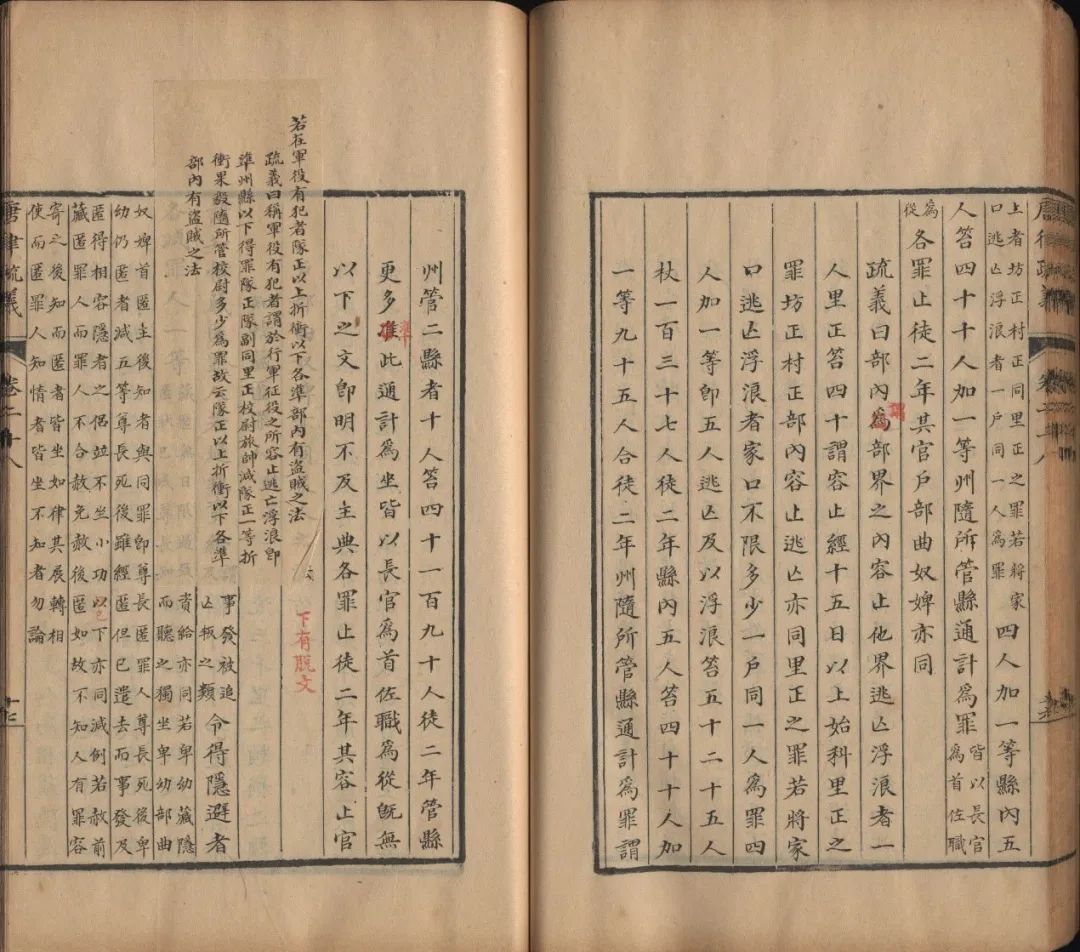 上者坊正村正同里正之罪若將家
口逃亾浮浪者一戶同一人爲罪
四人加一等縣內五
人笞四十十人加一等州隨所管縣通計爲罪
皆以長官
爲首佐職
爲
從
各罪止徒二年其官戶部曲奴婢亦同
疏義曰部內爲部界之內容止他界逃亾浮浪者一
謂
人里正笞四十謂容止經十五日以上始科里正之
罪坊正村正部內容止逃亾亦同里正之罪若將家
口逃亾浮浪者家口不限多少一戶同一人爲罪四
人加一等卽五人逃亾及以浮浪笞五十二十五人
杖一百三十七人徒二年縣內五人笞四十十人加
一等九十五人合徒二年州隨所管縣通計爲罪謂
州管二縣者十人笞四十一百九十人徒二年管縣
更多準此通計爲坐皆以長官爲首佐職爲從旣無
以下之文卽明不及主典各罪止徒二年其容止官
下有脫文
若在軍役有犯者隊正以上折衝以下各準部內有盜賊之法
疏義曰稱軍役有犯者謂於行軍征役之所容止逃亡浮浪卽
準州縣以下得罪隊正隊副同里正校尉旅帥減隊正一等折
衝果毅隨所管校尉多少爲罪故云隊正以上折衝以下各準
部內有盜賊之法
事發被追
亾叛之類
令得隱避者
資給亦同若卑幼藏隱
而聽之獨坐卑幼部曲
奴婢首匿主後知者與同罪卽尊長匿罪人尊長死後卑
幼仍匿者減五等尊長死後雖經匿但已遣去而事發及
匿得相容隱者之侶竝不坐小功以下亦同減例若赦前
藏匿罪人而罪人不合赦免赦後匿如故不知人有罪容
寄之後知而匿者皆坐如律其展轉相
使而匿罪人知情者皆坐不知者勿論
唐律疏義 卷二十八